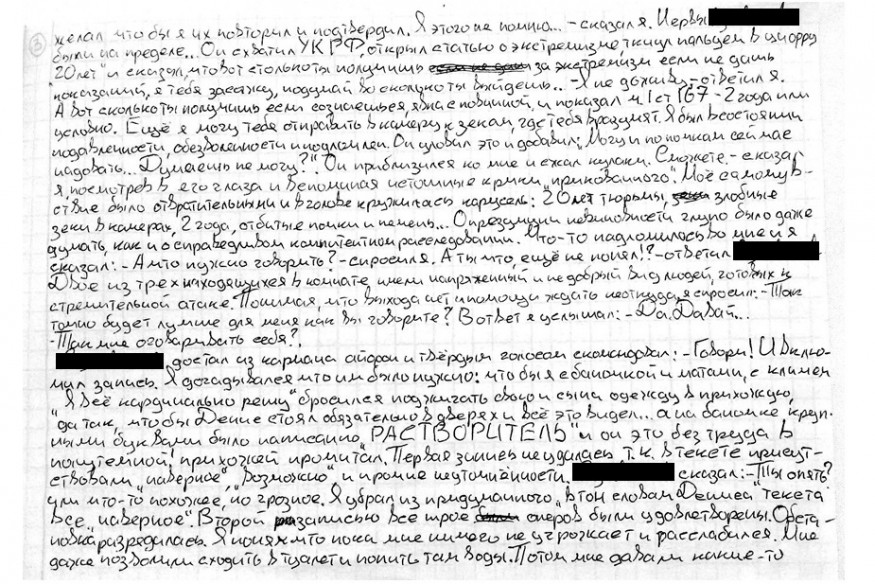 3
желал что бы я их повторил и подтвердил. Я этого не помню... – сказал я. Нервы
были на пределе... Он схватил УК РФ, открыл статью о экстремизме, ткнул пальцем в цифру
"20 лет" и сказал, что вот столько ты получишь за экстремизм если не дашь
показаний, я тебя засажу, подумай во сколько ты выйдешь... – Я не доживу – ответил я.
А вот сколько ты получишь если сознаешься, явка с повинной, и показал ч 1 ст 167 – 2 года или
условно. Ещё я могу тебя отправить в камеру к зекам, где тебя вразумят. Я был в состоянии
подавленности, обезволенности и подломлен. Он уловил это и добавил: Могу и по почкам сейчас
надовать... Думаешь не могу?". Он приблизился ко мне и сжал кулаки. Сможете. – сказал
я, посмотрев в его глаза и вспоминая истошные крики "прикованного". Моё самочув-
ствие было отвратительным и в голове кружилась карусель: 20 лет тюрьмы, злобные
зеки в камерах, 2 года, отбитые почки и печень... О презумпции невиновности глупо было даже
думать, как и о справедливом компитентном расследовании. Что-то надломилось во мне и я
сказал: – А что нужно говорить? – спросил я. А ты что, ещё не понял!? – ответил
Двое из трех находящихся в комнате, имели напряженный и не добрый вид людей, готовых к
стремительной атаке. Понимая, что выхода нет, и помощи ждать неоткуда, я спросил: – Так
точно будет лучше для меня как вы говорите? В ответ я услышал: – Да. Давай...
– Так мне оговаривать себя?.
достал из кармана айфон и твёрдым голосом скомандовал: – Говори! И вклю-
чил запись. Я догадывался что им было нужно: что бы я с баночкой и матами, с кличем
"Я всё кардинально решу" бросился поджигать свою и сына одежду в прихожую,
да так, что бы Денис стоял обязательно в дверях и всё это видел... а на баночке круп-
ными буквами было написанно "РАСТВОРИТЕЛЬ" и он это без труда в
полутёмной! прихожей прочитал. Первая запись не удалась, т.к. в тексте присут-
ствовали "наверное", "возможно" и прочие неуточнённости. сказал: – Ты опять?
или что-то похожее, но грозное. Я убрал из придуманного "в тон словам Дениса" текста
все "наверное". Второй записью все трое оперов были удовлетворены. Обста-
новка разредилась. Я понял что пока мне ничего не угрожает и расслабился. Мне
даже позволили сходить в туалет и попить там воды. Потом мне давали какие-то